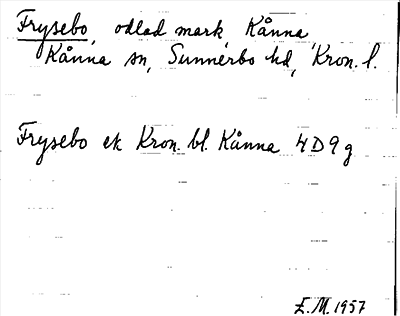 Frysebo, odlad mark Kånna
Kånna sn, Sunnerbo hd, Kron. l.
Frysebo ek Kron. bl. Kånna 4D9g
E.M. 1957